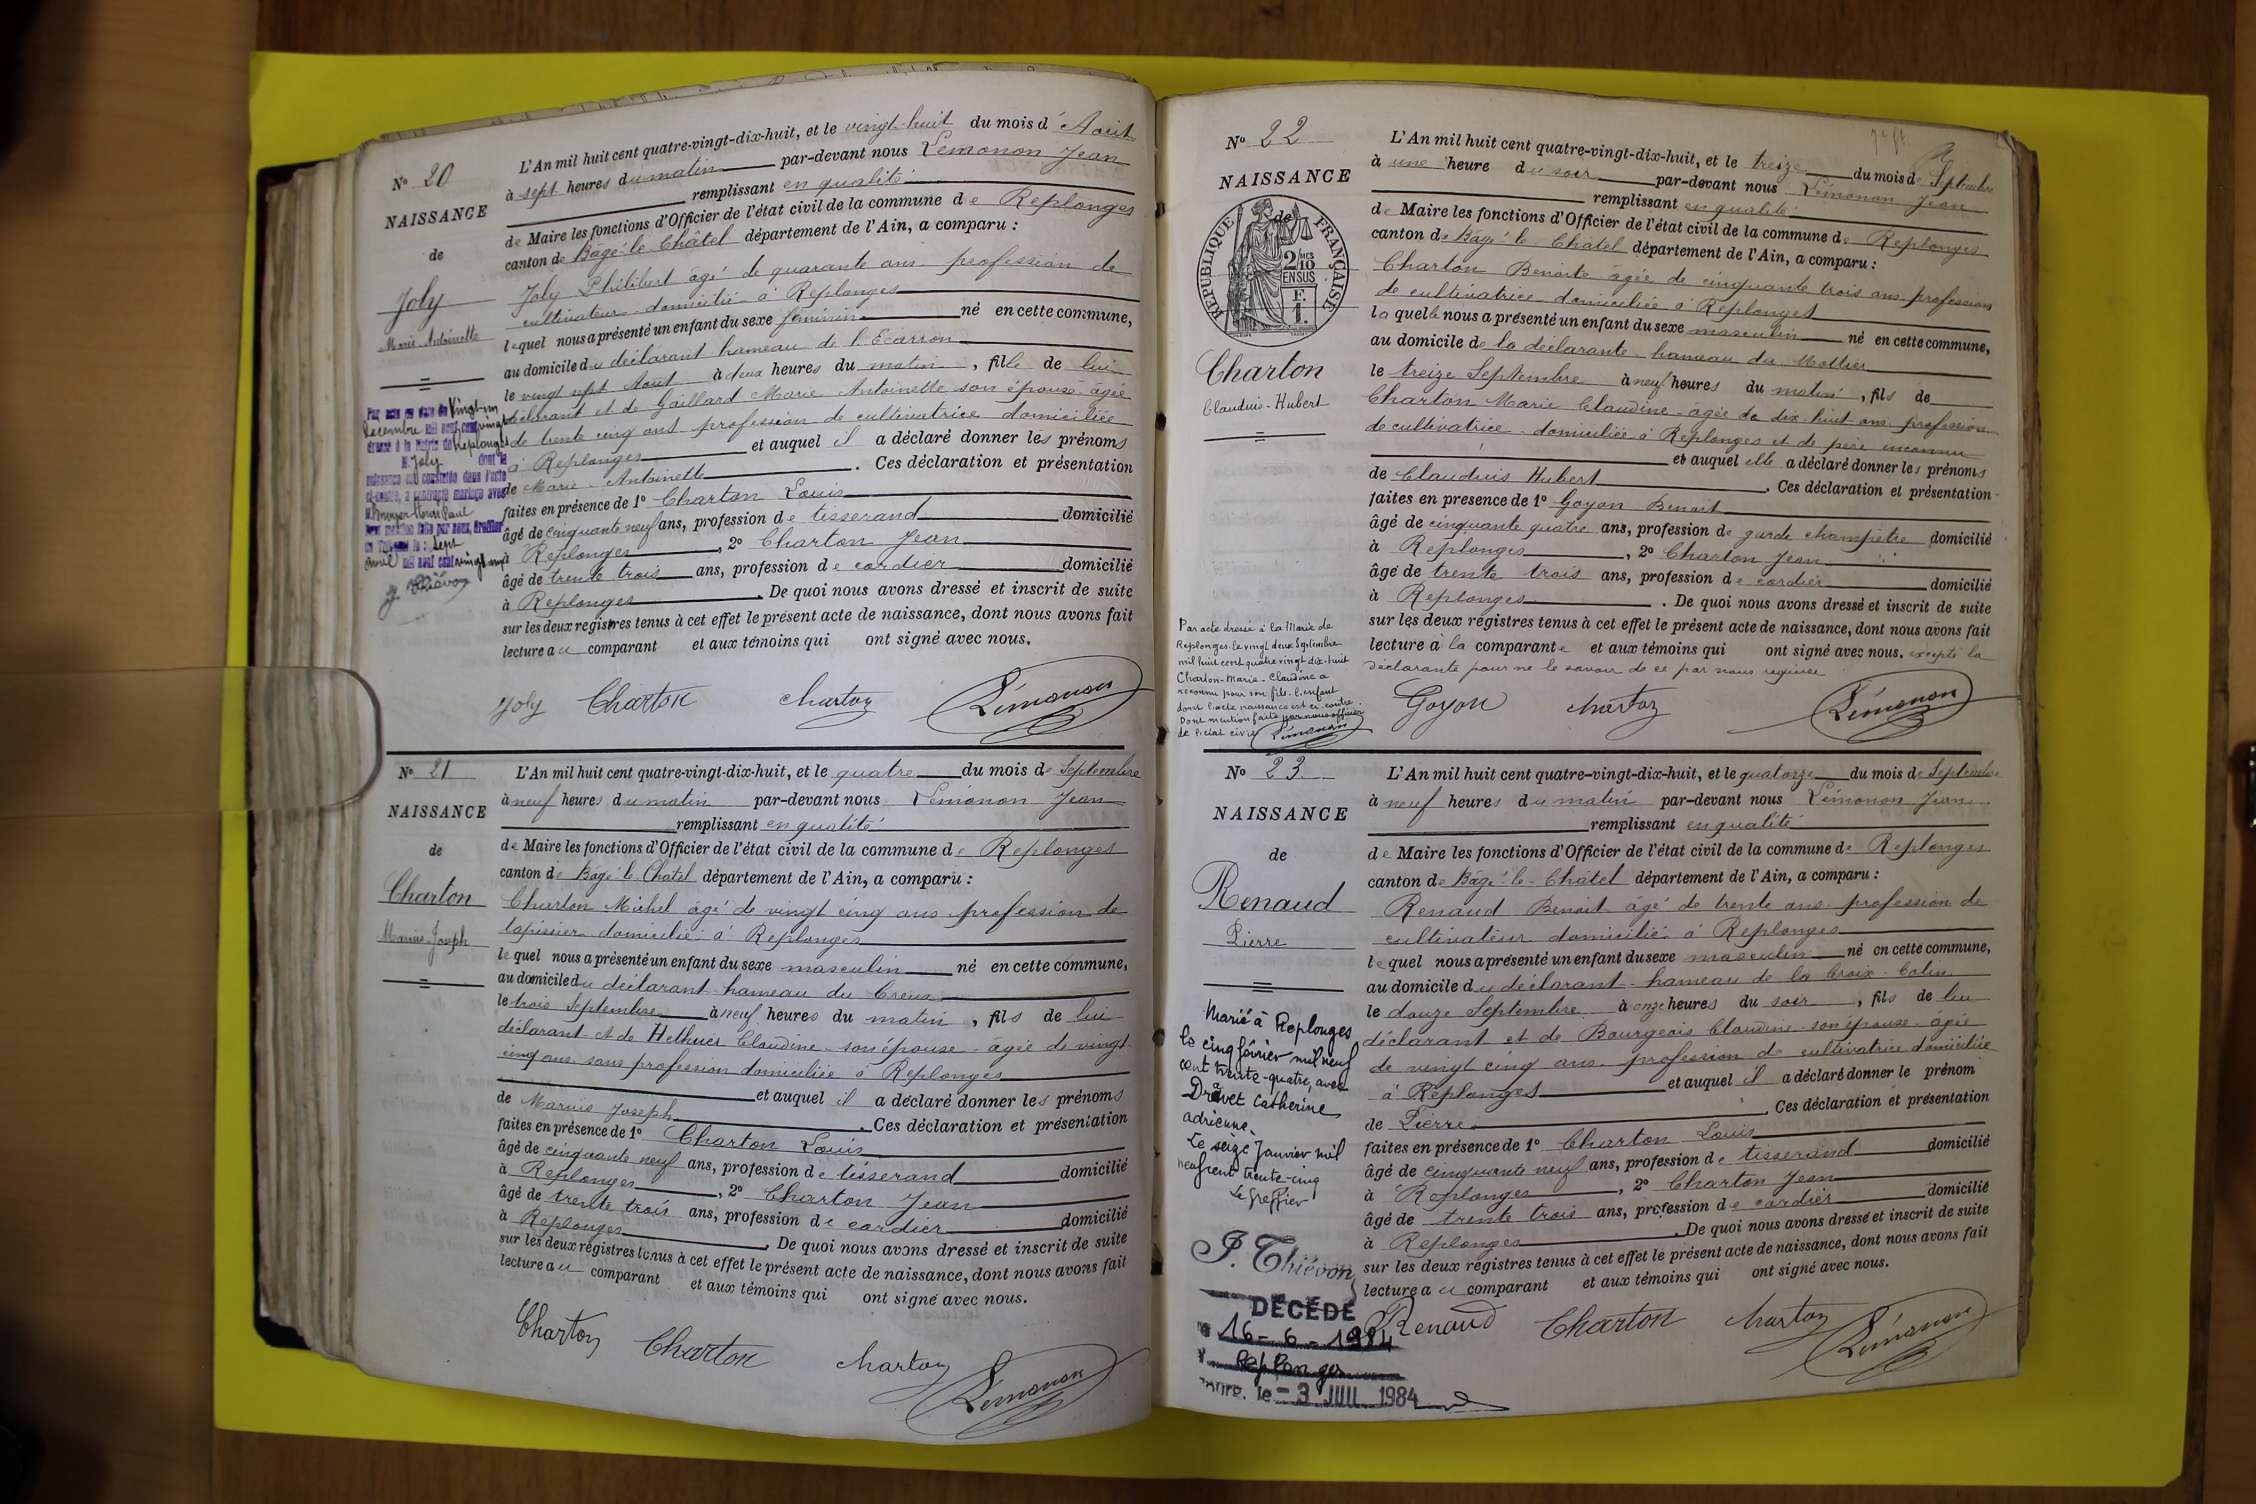 N° 20
NAISSANCE
de
Joly
Marie-Antoinette
L'An mil huit cent quatre-vingt-dix-huit, et le vingt-huit du mois d'Août
à sept heures du matin par-devant nous Lémonon Jean
remplissant en qualité
de Maire les fonctions d'Officier de l'état civil de la commune de Replonges
canton de Bâgé-le-Châtel département de l'Ain, a comparu :
Joly Philibert âgé de quarante ans profession de
cultivateur domicilié à Replonges
lequel nous a présenté un enfant du sexe féminin né en cette commune,
au domicile du déclarant hameau de l'Ecarron
le vingt sept Août à deux heures du matin, fille de lui
déclarant et de Gaillard Marie Antoinette son épouse âgée
de trente cinq ans profession de cultivatrice domiciliée
à Replonges et auquel il a déclaré donner les prénoms
de Marie-Antoinette. Ces déclaration et présentation
faites en présence de 1° Charton Louis
âgé de cinquante neuf ans, profession de tisserand domicilié
à Replonges, 2° Charton Jean
âgé de trente trois ans, profession de cordier domicilié
à Replonges. De quoi nous avons dressé et inscrit de suite
sur les deux registres tenus à cet effet le présent acte de naissance, dont nous avons fait
lecture au comparant et aux témoins qui ont signé avec nous.
Joly Charton Charton Lémonon
Par acte en date du vingt-un
Décembre mil neuf cent vingt
dressé à la Mairie de Replonges
M. Joly dont la
naissance est constatée dans l'acte
ci-contre, a contracté mariage avec
M. Broyer Henri Paul
Dont mention faite par nous, Greffier
sept
avril mil neuf cent vingt un
J. Thiévon
N° 21
NAISSANCE
de
Charton
Marius-Joseph
L'An mil huit cent quatre-vingt-dix-huit, et le quatre du mois de Septembre
à neuf heures du matin par-devant nous Lémonon Jean
remplissant en qualité
de Maire les fonctions d'Officier de l'état civil de la commune de Replonges
canton de Bâgé-le-Châtel département de l'Ain, a comparu :
Charton Michel âgé de vingt cinq ans profession de
tapissier domicilié à Replonges
lequel nous a présenté un enfant du sexe masculin né en cette commune,
au domicile du déclarant hameau du Creux
le trois Septembre à neuf heures du matin, fils de lui
déclarant et de Hethuer Claudine son épouse âgée de vingt
cinq ans sans profession domiciliée à Replonges
et auquel il a déclaré donner les prénoms
de Marius Joseph. Ces déclaration et présentation
faites en présence de 1° Charton Louis
âgé de cinquante neuf ans, profession de tisserand domicilié
à Replonges, 2° Charton Jean
âgé de trente trois ans, profession de cordier domicilié
à Replonges. De quoi nous avons dressé et inscrit de suite
sur les deux registres tenus à cet effet le présent acte de naissance, dont nous avons fait
lecture au comparant et aux témoins qui ont signé avec nous.
Charton Charton Charton Lémonon
N° 22
NAISSANCE
de
RÉPUBLIQUE FRANÇAISE
2/10 MES
EN SUS
F.
1.
Charton
Claudius-Hubert
L'An mil huit cent quatre-vingt-dix-huit, et le treize du mois de Septembre
à une heure du soir par-devant nous Lémonon Jean
remplissant en qualité
de Maire les fonctions d'Officier de l'état civil de la commune de Replonges
canton de Bâgé-le-Châtel département de l'Ain, a comparu :
Charton Benoite âgée de cinquante trois ans profession
de cultivatrice domiciliée à Replonges
laquelle nous a présenté un enfant du sexe masculin né en cette commune,
au domicile de la déclarante hameau du Mottier
le treize Septembre à neuf heures du matin, fils de
Charton Marie Claudine âgée de dix huit ans profession
de cultivatrice domiciliée à Replonges et de père inconnu
et auquel elle a déclaré donner les prénoms
de Claudius Hubert. Ces déclaration et présentation
faites en présence de 1° Goyon Benoit
âgé de cinquante quatre ans, profession de garde champêtre domicilié
à Replonges, 2° Charton Jean
âgé de trente trois ans, profession de cordier domicilié
à Replonges. De quoi nous avons dressé et inscrit de suite
sur les deux régistres tenus à cet effet le présent acte de naissance, dont nous avons fait
lecture à la comparante et aux témoins qui ont signé avec nous, excepté la
déclarante pour ne le savoir de ce par nous requise
Goyon Charton Lémonon
Par acte dressé à la Mairie de
Replonges le vingt deux Septembre
mil huit cent quatre vingt dix-huit
Charton-Marie-Claudine a
reconnu pour son fils l'enfant
dont l'acte naissance est ci-contre.
Dont mention faite par nous officier
de l'état civil Lémonon
N° 23
NAISSANCE
de
Renaud
Pierre
L'An mil huit cent quatre-vingt-dix-huit, et le quatorze du mois de Septembre
à neuf heures du matin par-devant nous Lémonon Jean
remplissant en qualité
de Maire les fonctions d'Officier de l'état civil de la commune de Replonges
canton de Bâgé-le-Châtel département de l'Ain, a comparu :
Renaud Benoit âgé de trente ans profession de
cultivateur domicilié à Replonges
lequel nous a présenté un enfant du sexe masculin né en cette commune,
au domicile du déclarant hameau de la Croix-Colin
le douze Septembre à onze heures du soir, fils de lui
déclarant et de Bourgeois Claudine son épouse âgée
de vingt cinq ans profession de cultivatrice domiciliée
à Replonges et auquel il a déclaré donner le prénom
de Pierre. Ces déclaration et présentation
faites en présence de 1° Charton Louis
âgé de cinquante neuf ans, profession de tisserand domicilié
à Replonges, 2° Charton Jean
âgé de trente trois ans, profession de cordier domicilié
à Replonges. De quoi nous avons dressé et inscrit de suite
sur les deux régistres tenus à cet effet le présent acte de naissance, dont nous avons fait
lecture au comparant et aux témoins qui ont signé avec nous.
Renaud Charton Charton Lémonon
Marié à Replonges
le cinq février mil neuf
cent trente-quatre, avec
Dravet Catherine
adrienne.
Le seize Janvier mil
neuf cent trente-cinq
Le Greffier
J. Thiévon
DÉCÉDÉ
16-6-1984
Replonges
le -3 JUIL 1984